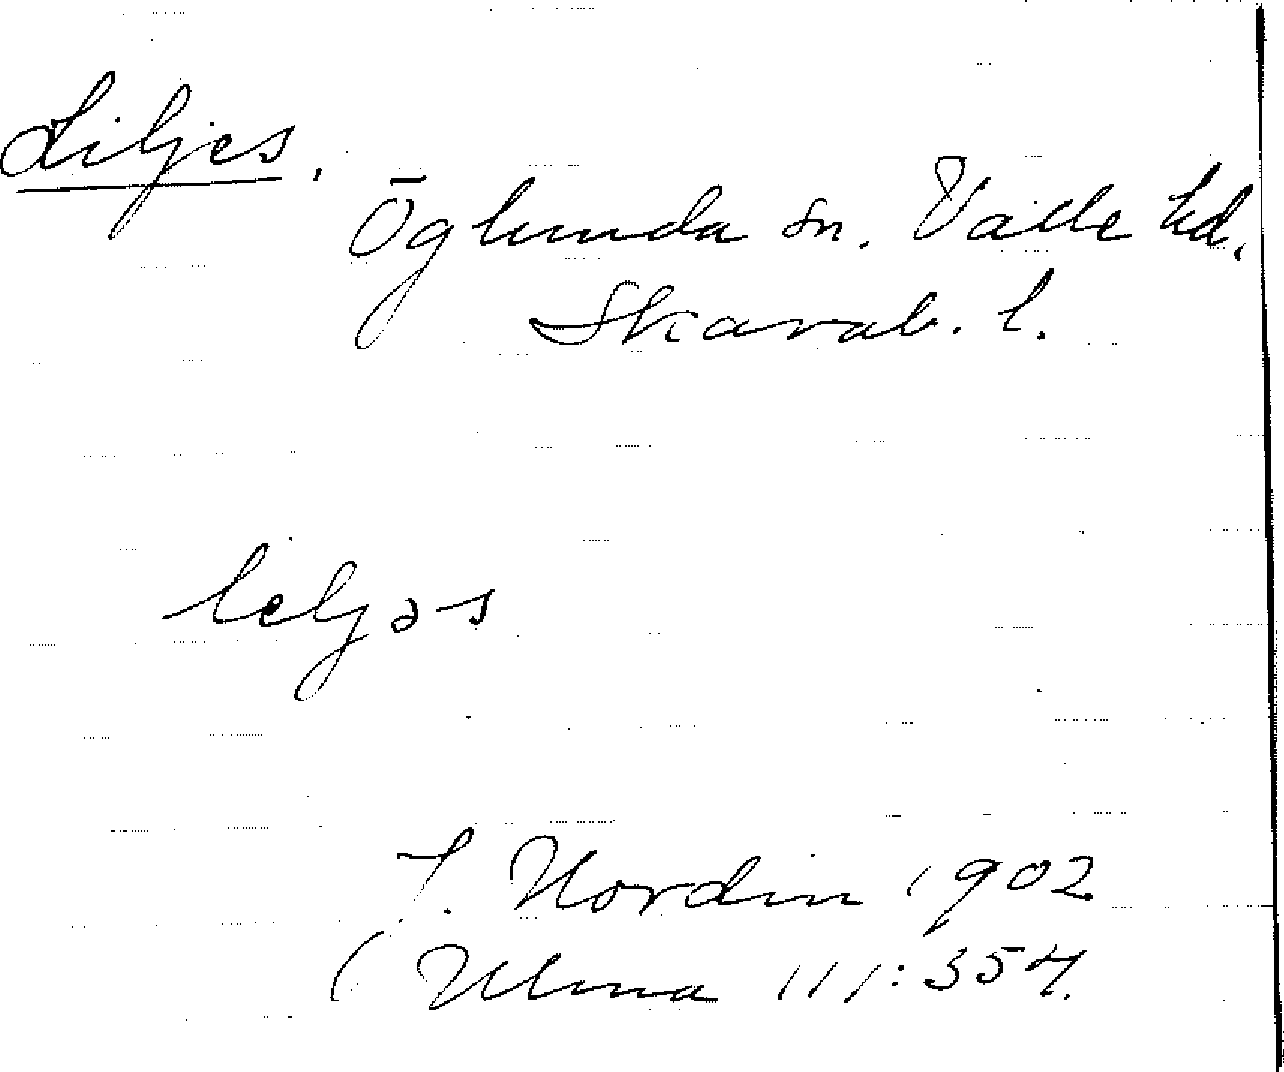 Liljes.
Öglunda sn. Valle hd.
Skarab. l.
liljəs
T. Nordin 1902
(Ulma 111:354.